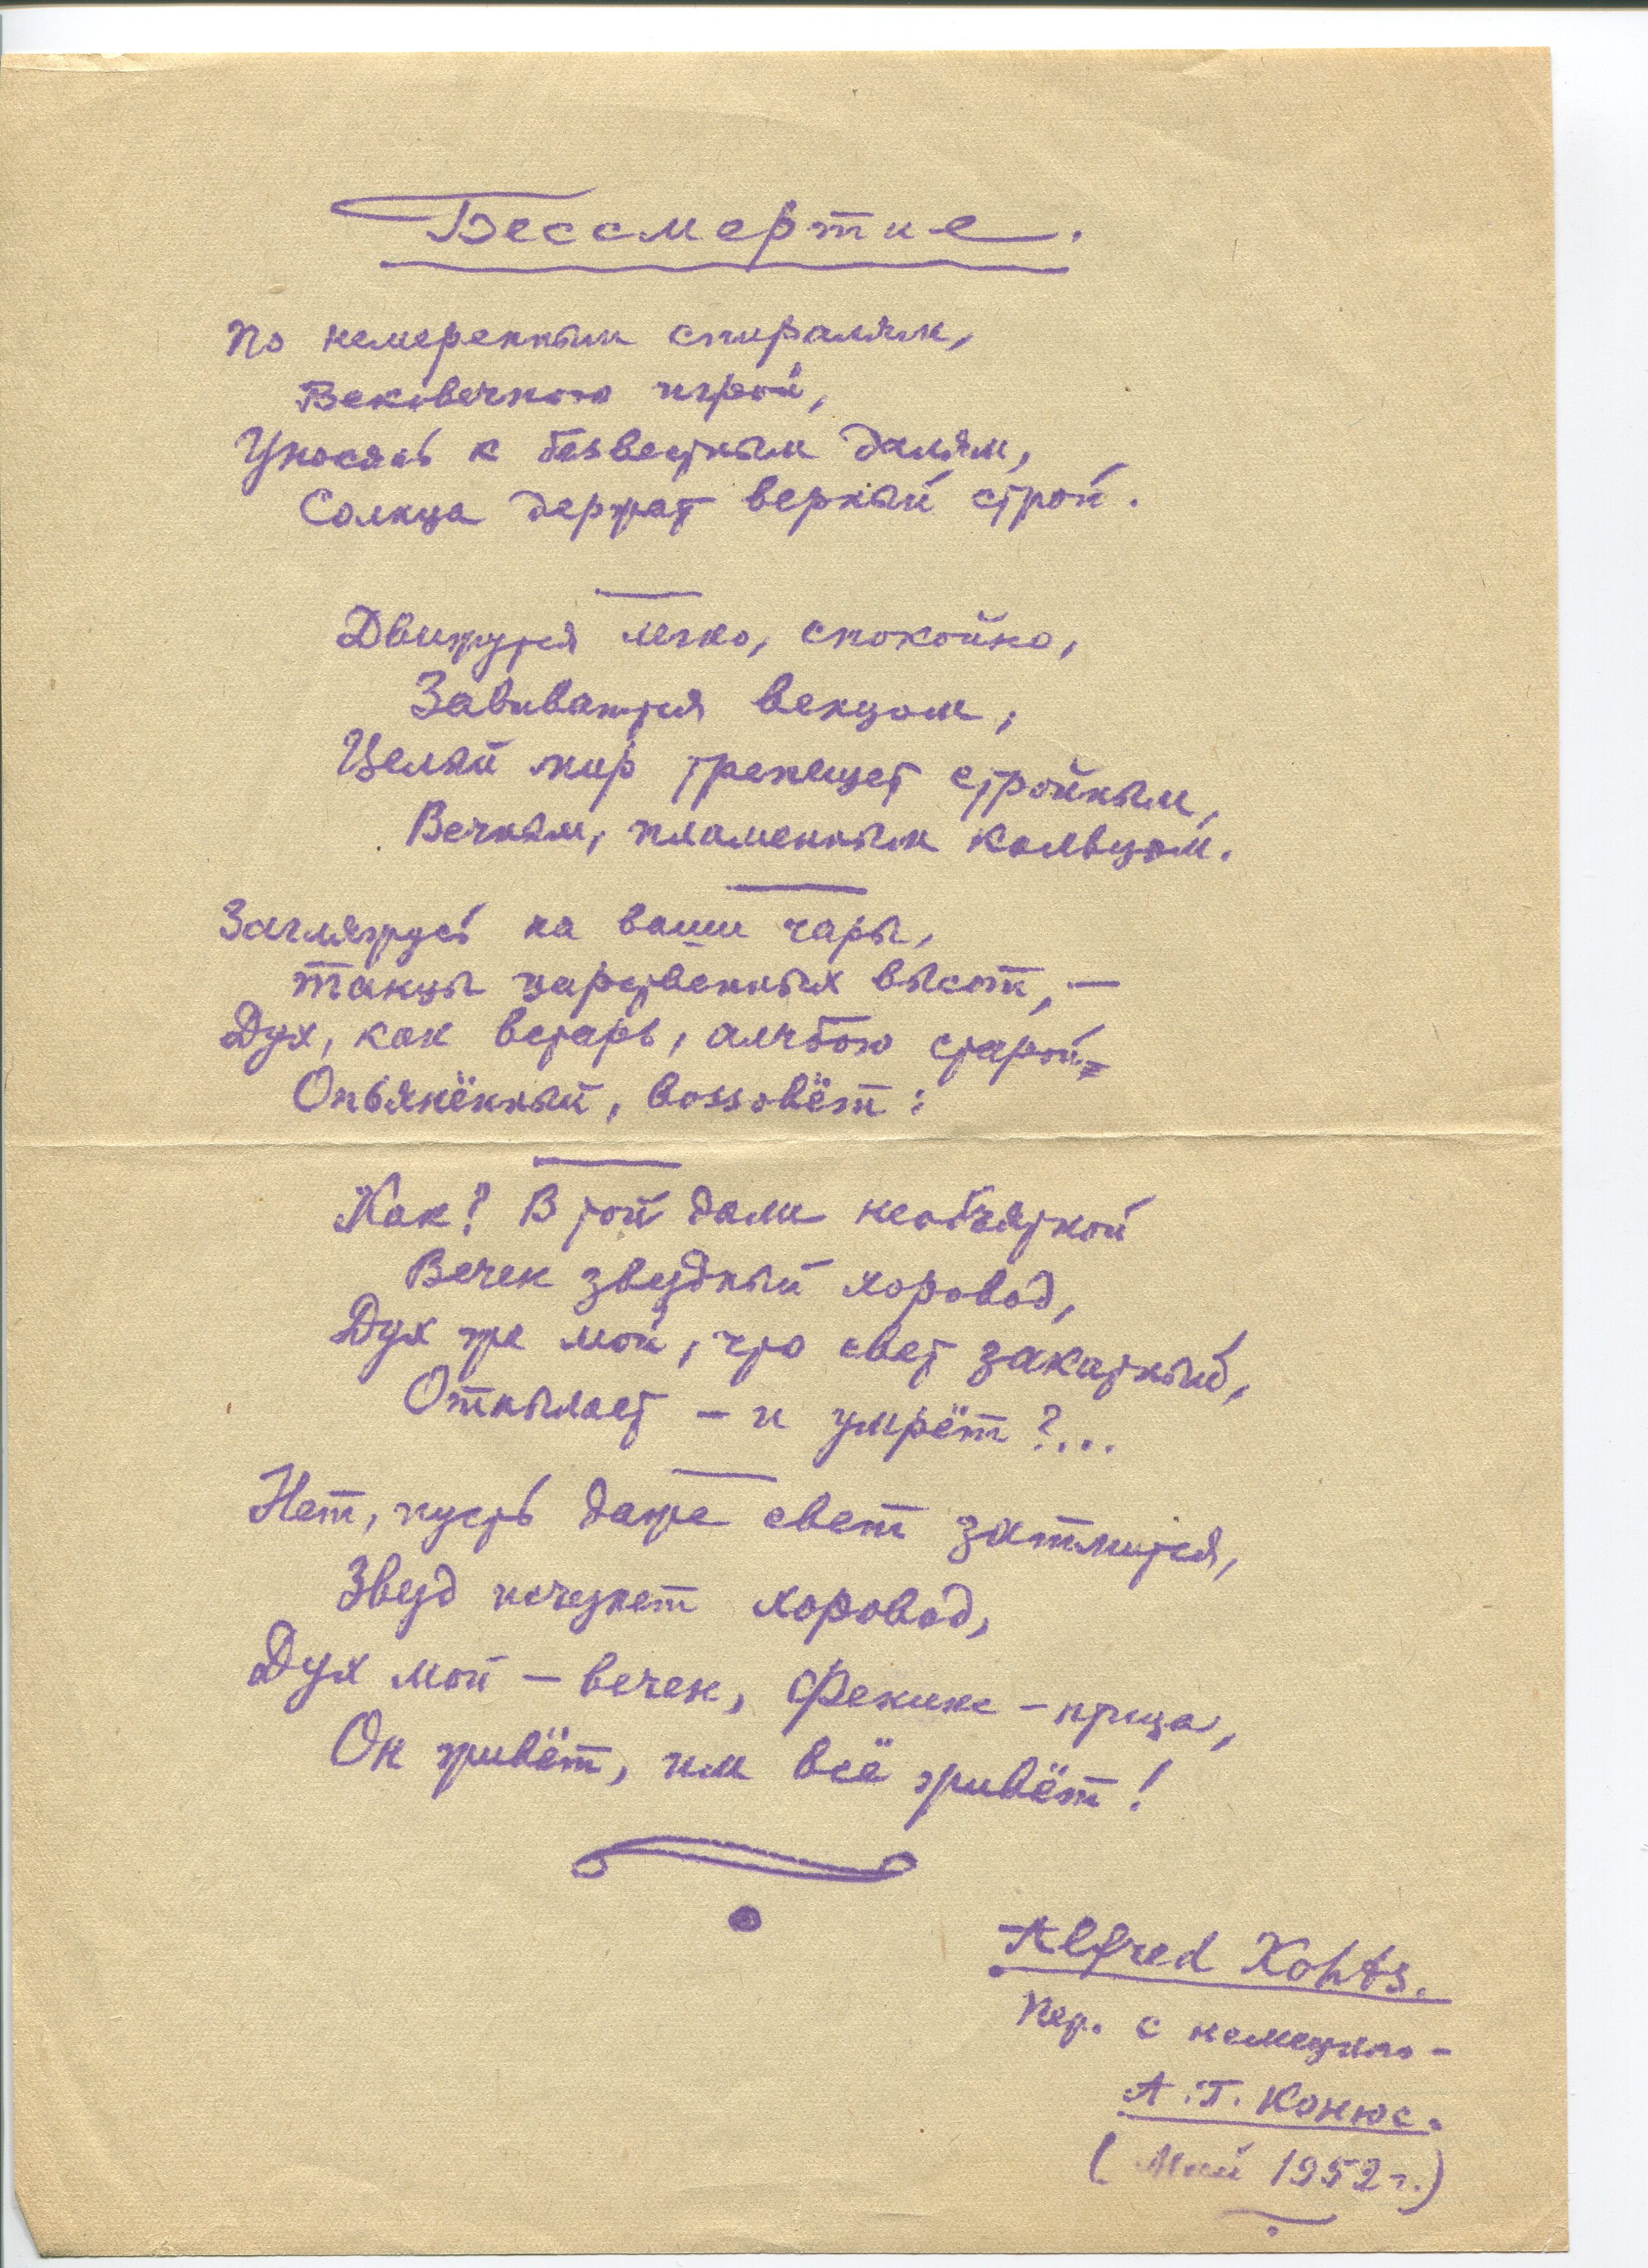 Бессмертие.
По немеренным спиралям,
Вековечною игрой,
Уносясь к безвестным далям,
Солнца держат верный строй.
Движутся легко, спокойно,
Завиваются венцом,
Целый мир трепещет стройным,
Вечным, пламенным кольцом.
Загляжусь на ваши чары,
Танцы царственных высот, —
Дух, как встарь, алчбою старой
Опьянённый, воззовёт:
Как? В той дали необъятной
Вечен звездный хоровод,
Дух же мой, что свет закатный,
Отпылает – и умрёт?...
Нет, пусть даже свет затмится,
Звезд исчезнет хоровод,
Дух мой – вечен, Феникс – птица,
Он живёт, им всё живёт!
Alfred Kohts.
Пер. с немецкого –
А. Г. Конюс.
(Май 1952 г.)